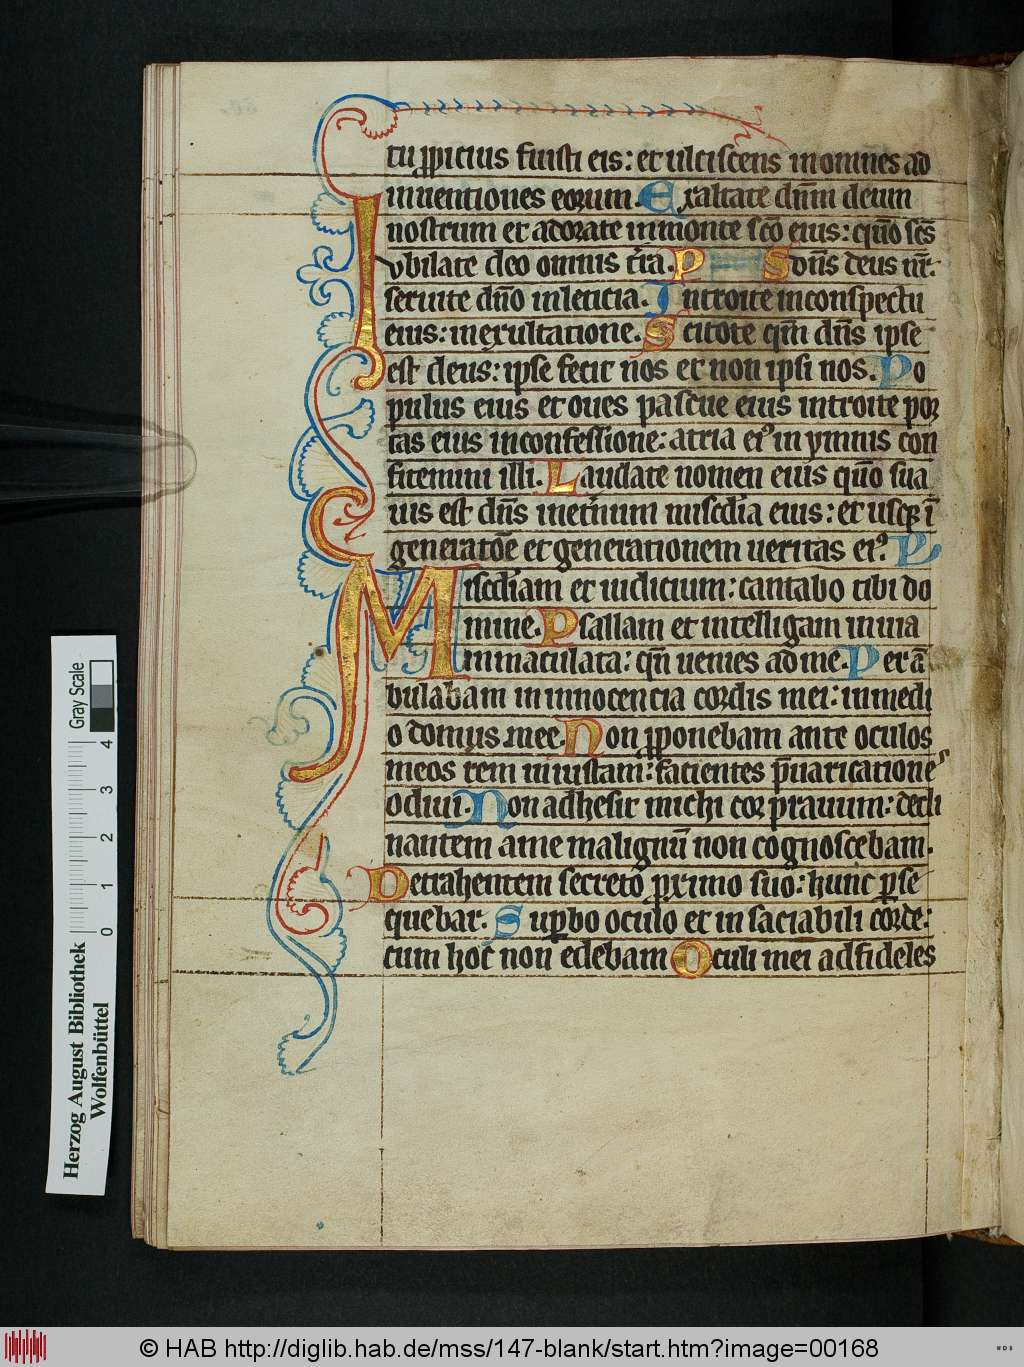 tu ꝓpicius fuisti eis: et ulciscens in omnes ad
inuentiones eorum. Exaltate dn̄m deum
nostrum et adorate in monte sc̄o eius: qm̄o sc̄s
Ivbilate deo omnis t̄ra. P S dn̄s deus nr̄.
seruite dn̄o in leticia. Introite in conspectu
eius: in exultatione. Scitote qm̄ dn̄s ipse
est deus: ipse fecit nos et non ipsi nos. Po
pulus eius et oues pascue eius introite por
tas eius in confessione: atria eiꝰ in ymnis con
fitemini illi. Laudate nomen eius qm̄o sua
uis est dn̄s inet̄num miscd̄ia eius: et usqꝫ ī
generatōe et generationem ueritas eiꝰ. PS
Miscd̄iam et iudicium: cantabo tibi do
mine. Psallam et intelligam in uia
inmaculata: qn̄ uenies ad me. Per ā
bulabam in innocencia cordis mei: in medi
o domus mee. Non ꝓponebam ante oculos
meos rem iniustam: facientes p̄uaricatione s
odiui. Non adhesit michi cor prauum: decli
nantem a me malignū non cognoscebam.
Detrahentem secreto ꝓximo suo: hunc ꝑse
quebar. Suꝑbo oculo et in saciabili corde:
cum hoc non edebam Oculi mei ad fideles
Gray Scale
0 1 2 3 4
Herzog August Bibliothek
Wolfenbüttel
© HAB http://diglib.hab.de/mss/147-blank/start.htm?image=00168